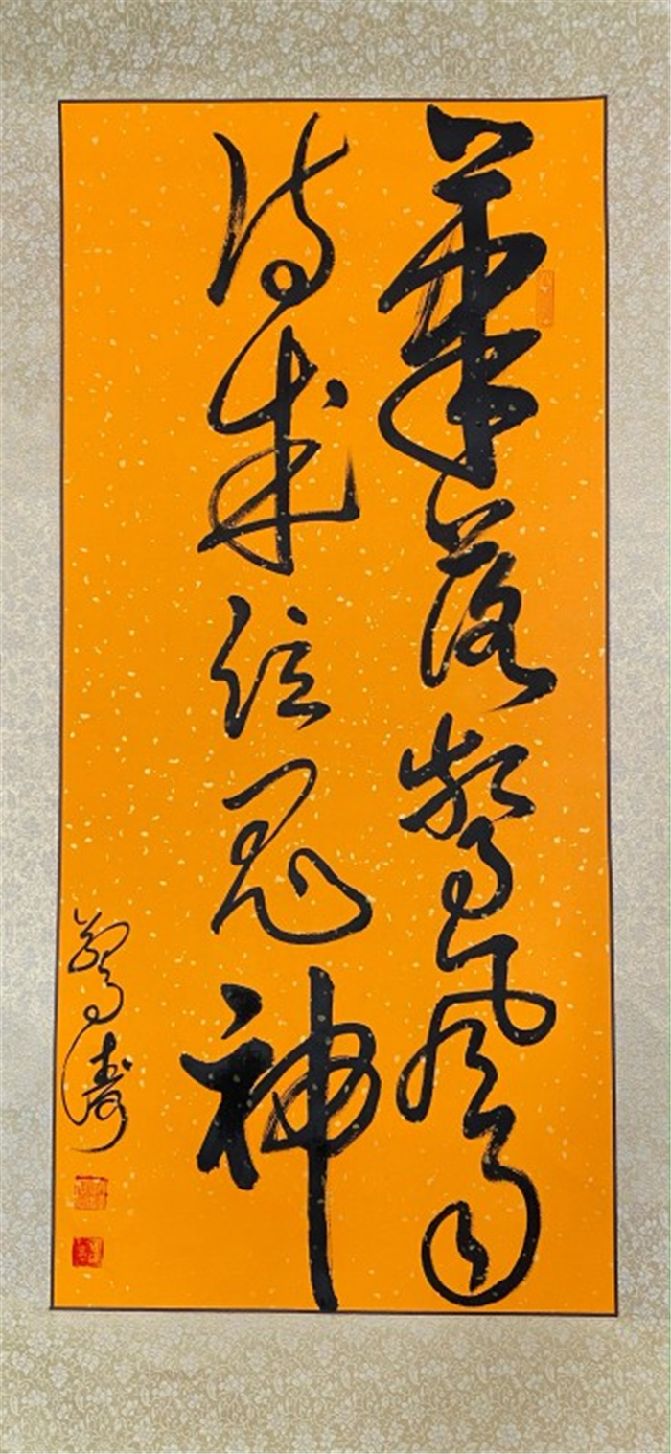 筆落驚風雨
詩成泣鬼神
驚濤